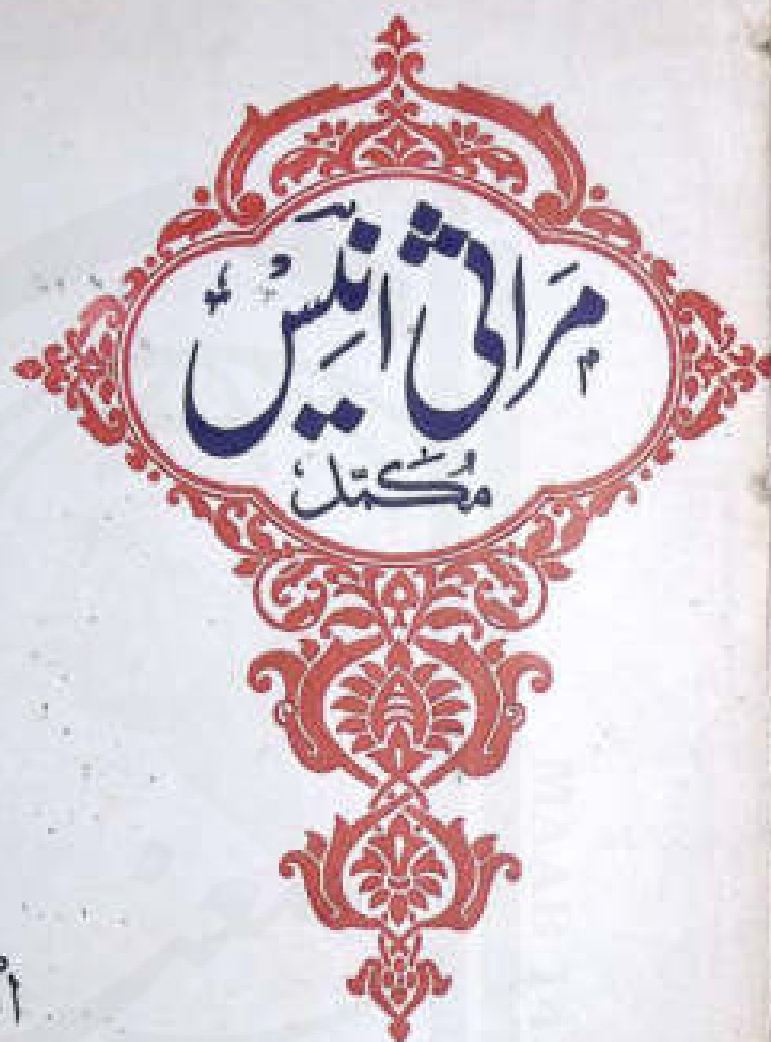 مَراثی انیسؔ
مُکمّل